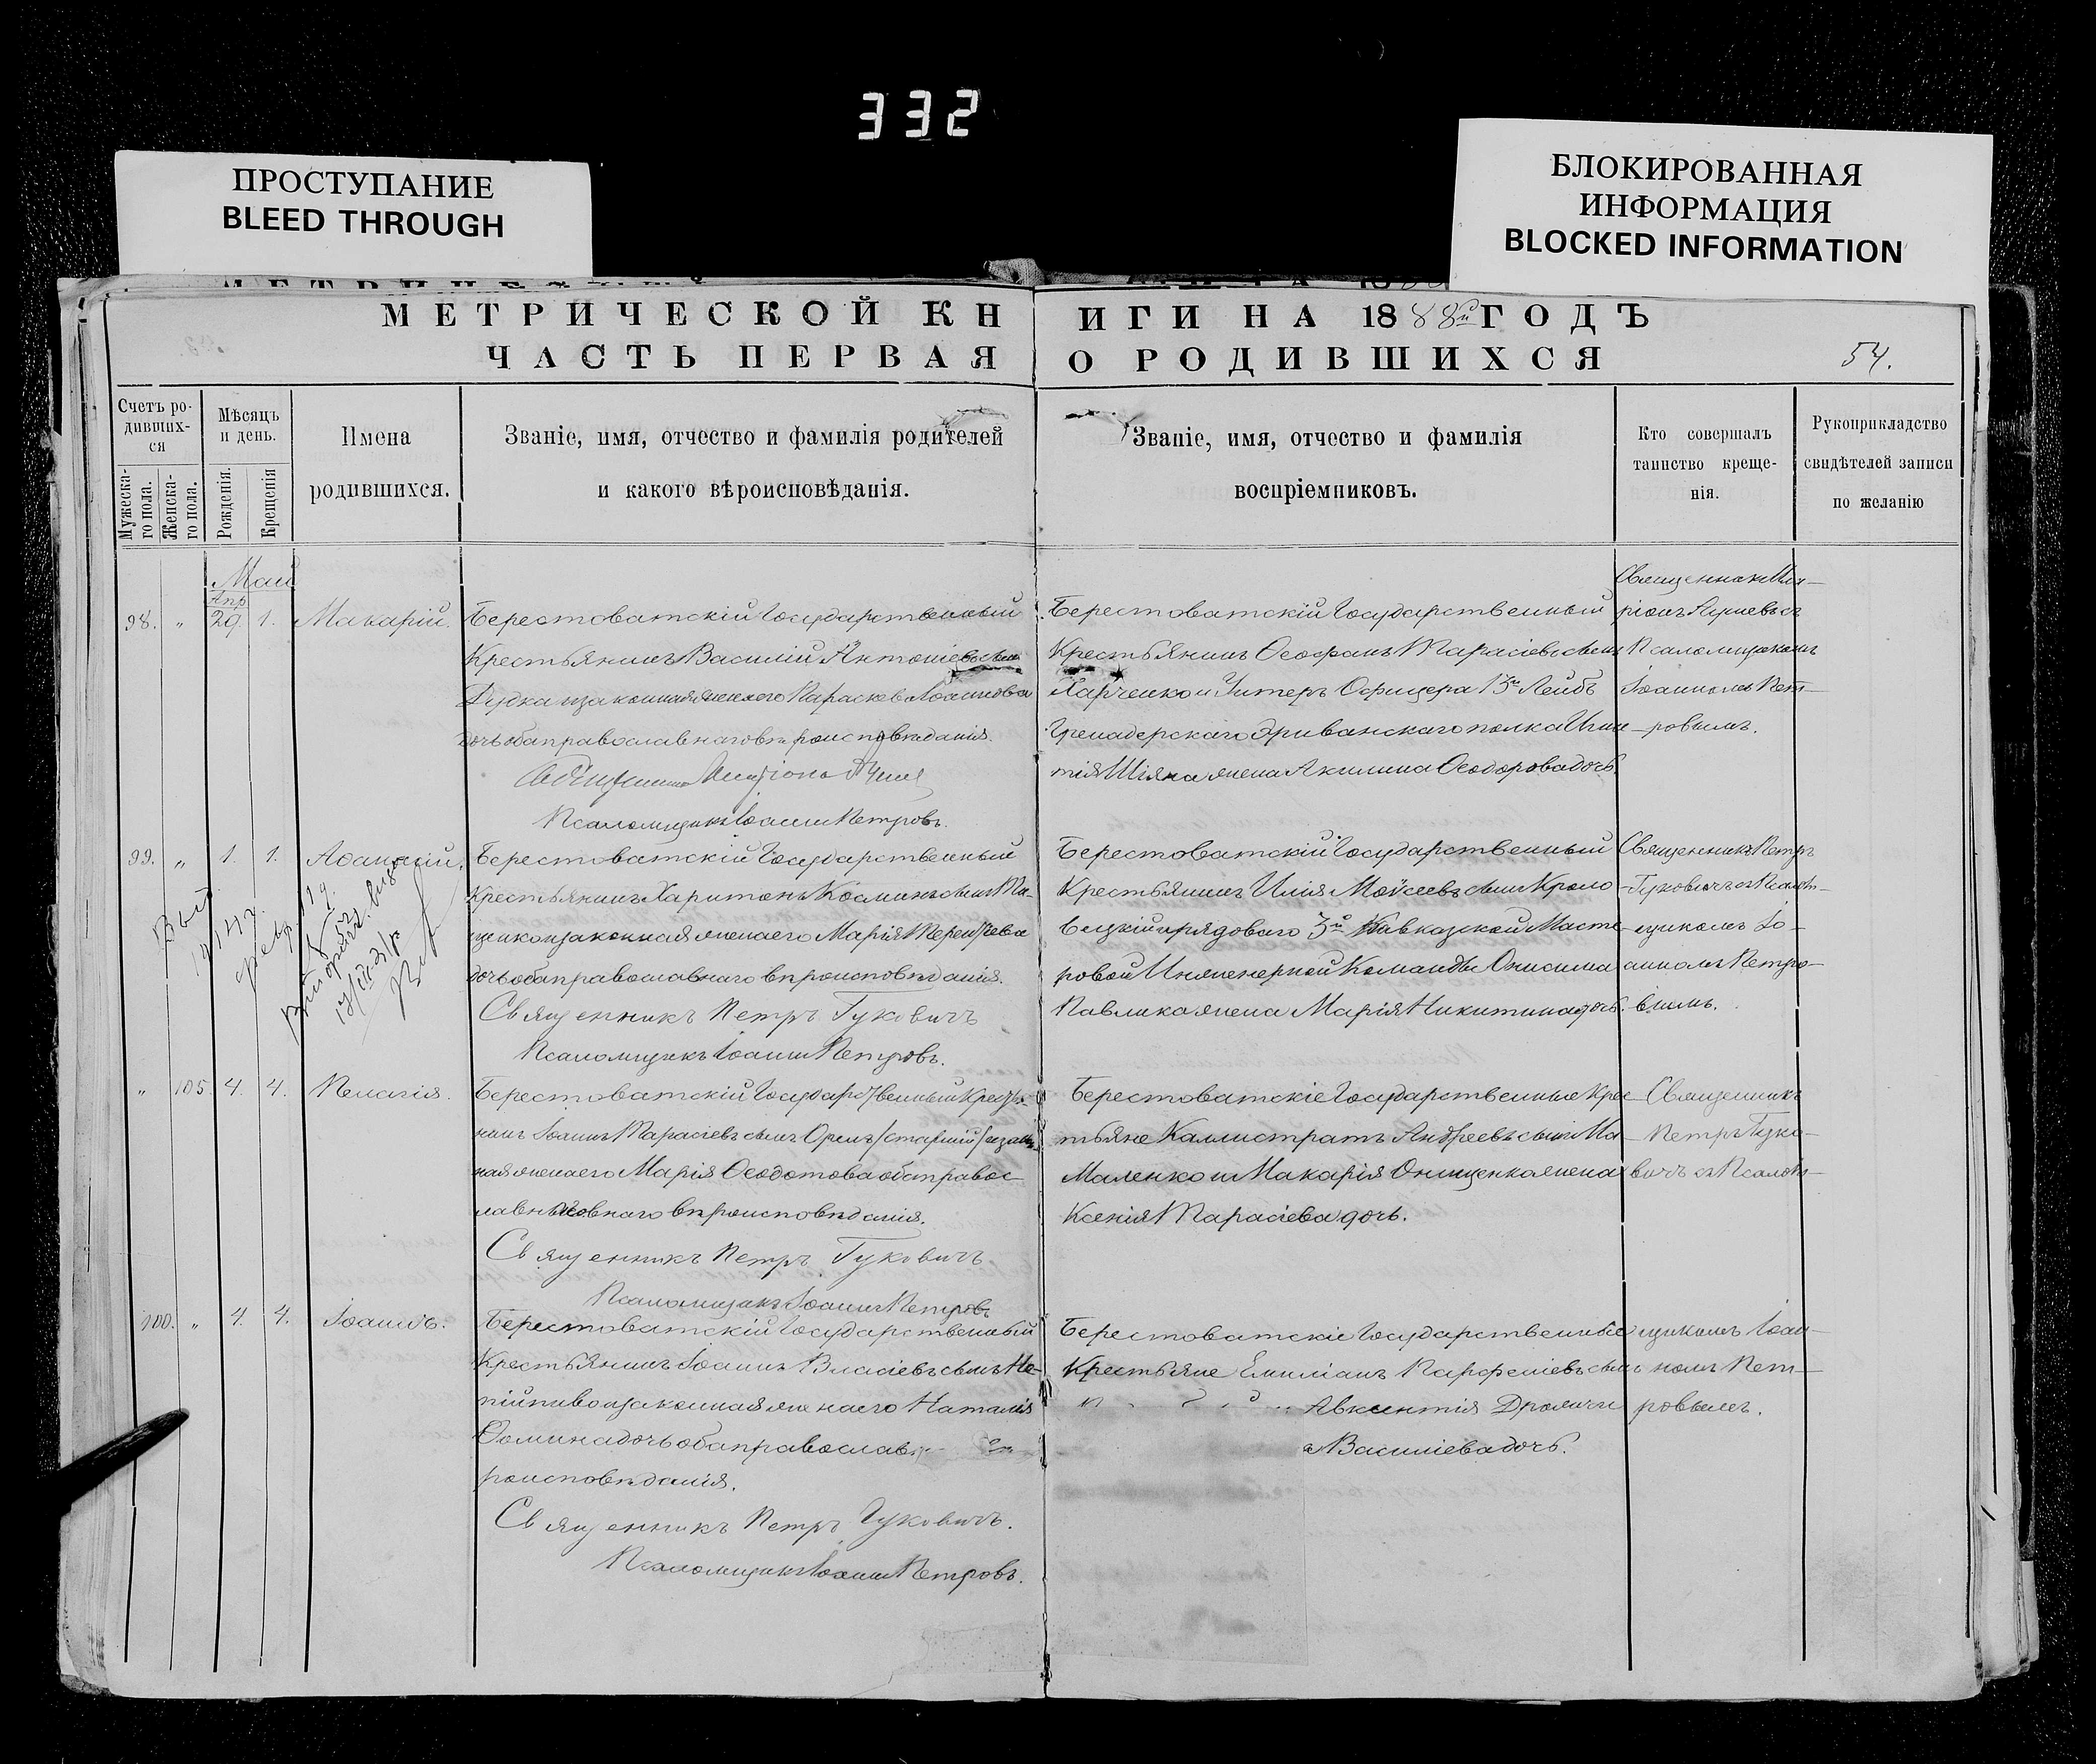 332
ПРОСТУПАНИЕ
BLEED THROUGH
БЛОКИРОВАННАЯ
ИНФОРМАЦИЯ
BLOCKED INFORMATION
МЕТРИЧЕСКОЙ КНИГИ НА 1888й ГОДЪ
ЧАСТЬ ПЕРВАЯ О РОДИВШИХСЯ
54.
Счетъ ро-
дивших-
ся
Мужеска-
го пола.
Женска-
го пола.
Мѣсяцъ
и день.
Рожденія.
Крещенія
Имена
родившихся.
Званіе, имя, отчество и фамилія родителей
и какого вѣроисповѣданія.
Званіе, имя, отчество и фамилія
воспріемниковъ.
Кто совершалъ
таинство креще-
нія.
Рукоприкладство
свидѣтелей записи
по желанію
Май
98. " Апр. 29. 1. Макарій.
Берестоватскій Государственный
Крестьянинъ Василій Антоніевъ сынъ
Дудка и законная жена его Параскева Іоаннова
дочь оба православнаго вѣроисповѣданія.
Псаломщикъ Іоаннъ Петровъ.
Берестоватскій Государственный
Крестьянинъ Ѳеофанъ Тарасіевъ сынъ
Харченко и Унтеръ Офицера 13го Лейбъ
Гренадерскаго Эриванскаго полка Игна
тія Шіяна жена Акилина Ѳеодорова дочь.
Священникъ
Псаломщикомъ
Іоанномъ Пет-
ровымъ.
99. " 1. 1. Аѳанасій.
Берестоватскій Государственный
Крестьянинъ Харитонъ Косминъ сынъ
законная жена его Марія Терентіева
дочь оба православнаго вѣроисповѣданія.
Священникъ Петръ Гуковичъ
Псаломщикъ Іоаннъ Петровъ.
Берестоватскій Государственный
Крестьянинъ Илія Моѵсеевъ сынъ Кроло-
вецкій и рядоваго 3й Кавказской Масте-
ровой Инженерной Команды Онисима
Павлика жена Марія Никитина дочь.
Священникъ Петръ
Гуковичъ съ Псалом-
щикомъ Іо-
анномъ Петро-
вымъ.
" 105. 4. 4. Пелагія.
Берестоватскій Государственный Крестья-
нинъ Іоаннъ Тарасіевъ сынъ Орелъ /старшій/ и закон
ная жена его Марія Ѳеодотова оба правос-
вѣроисповѣданія.
Священникъ Петръ Гуковичъ
Псаломщикъ Іоаннъ Петровъ
Берестоватскіе Государственные Крес-
тьяне Каллистратъ Андреевъ сынъ Ма-
Маленко и Макарія Онищенка жена
Ксенія Тарасіева дочь.
Священникъ
Петръ Гуко-
вичъ съ Псалом-
100. " 4. 4. Іоаннъ.
Берестоватскій Государственный
Крестьянинъ Іоаннъ Власіевъ сынъ Не-
пійпиво и законная жена его Наталія
Ѳомина дочь оба православ
роисповѣданія.
Священникъ Петръ Гуковичъ.
Псаломщикъ Іоаннъ Петровъ.
Берестоватскіе Государственные
Крестьяне Емиліанъ Парфеніевъ сынъ
Авксентія
Василіева дочь.
щикомъ Іоан-
номъ Пет-
ровымъ.